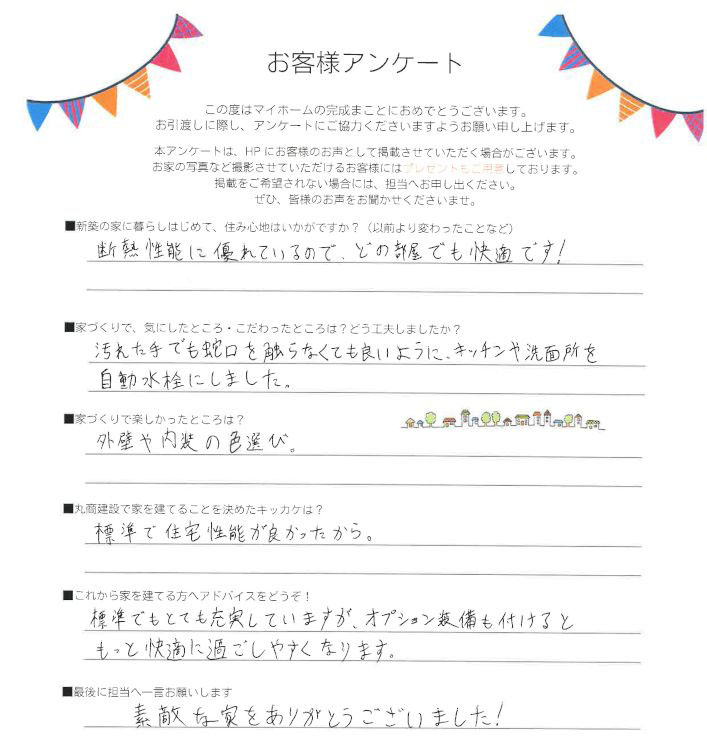 お客様アンケート
この度はマイホームの完成まことにおめでとうございます。
お引渡しに際し、アンケートにご協力くださいますようお願い申し上げます。
本アンケートは、HPにお客様のお声として掲載させていただく場合がございます。
お家の写真など撮影させていただけるお客様にはプレゼントもご用意しております。
掲載をご希望されない場合には、担当へお申し出ください。
ぜひ、皆様のお声をお聞かせくださいませ。
■新築の家に暮らしはじめて、住み心地はいかがですか？（以前より変わったことなど）
断熱性能に優れているので、どの部屋でも快適です！
■家づくりで、気にしたところ・こだわったところは？どう工夫しましたか？
汚れた手でも蛇口を触らなくても良いように、キッチンや洗面所を
自動水栓にしました。
■家づくりで楽しかったところは？
外壁や内装の色選び。
■丸商建設で家を建てることを決めたキッカケは？
標準で住宅性能が良かったから。
■これから家を建てる方へアドバイスをどうぞ！
標準でもとても充実していますが、オプション装備も付けると
もっと快適に過ごしやすくなります。
■最後に担当へ一言お願いします
素敵な家をありがとうございました！